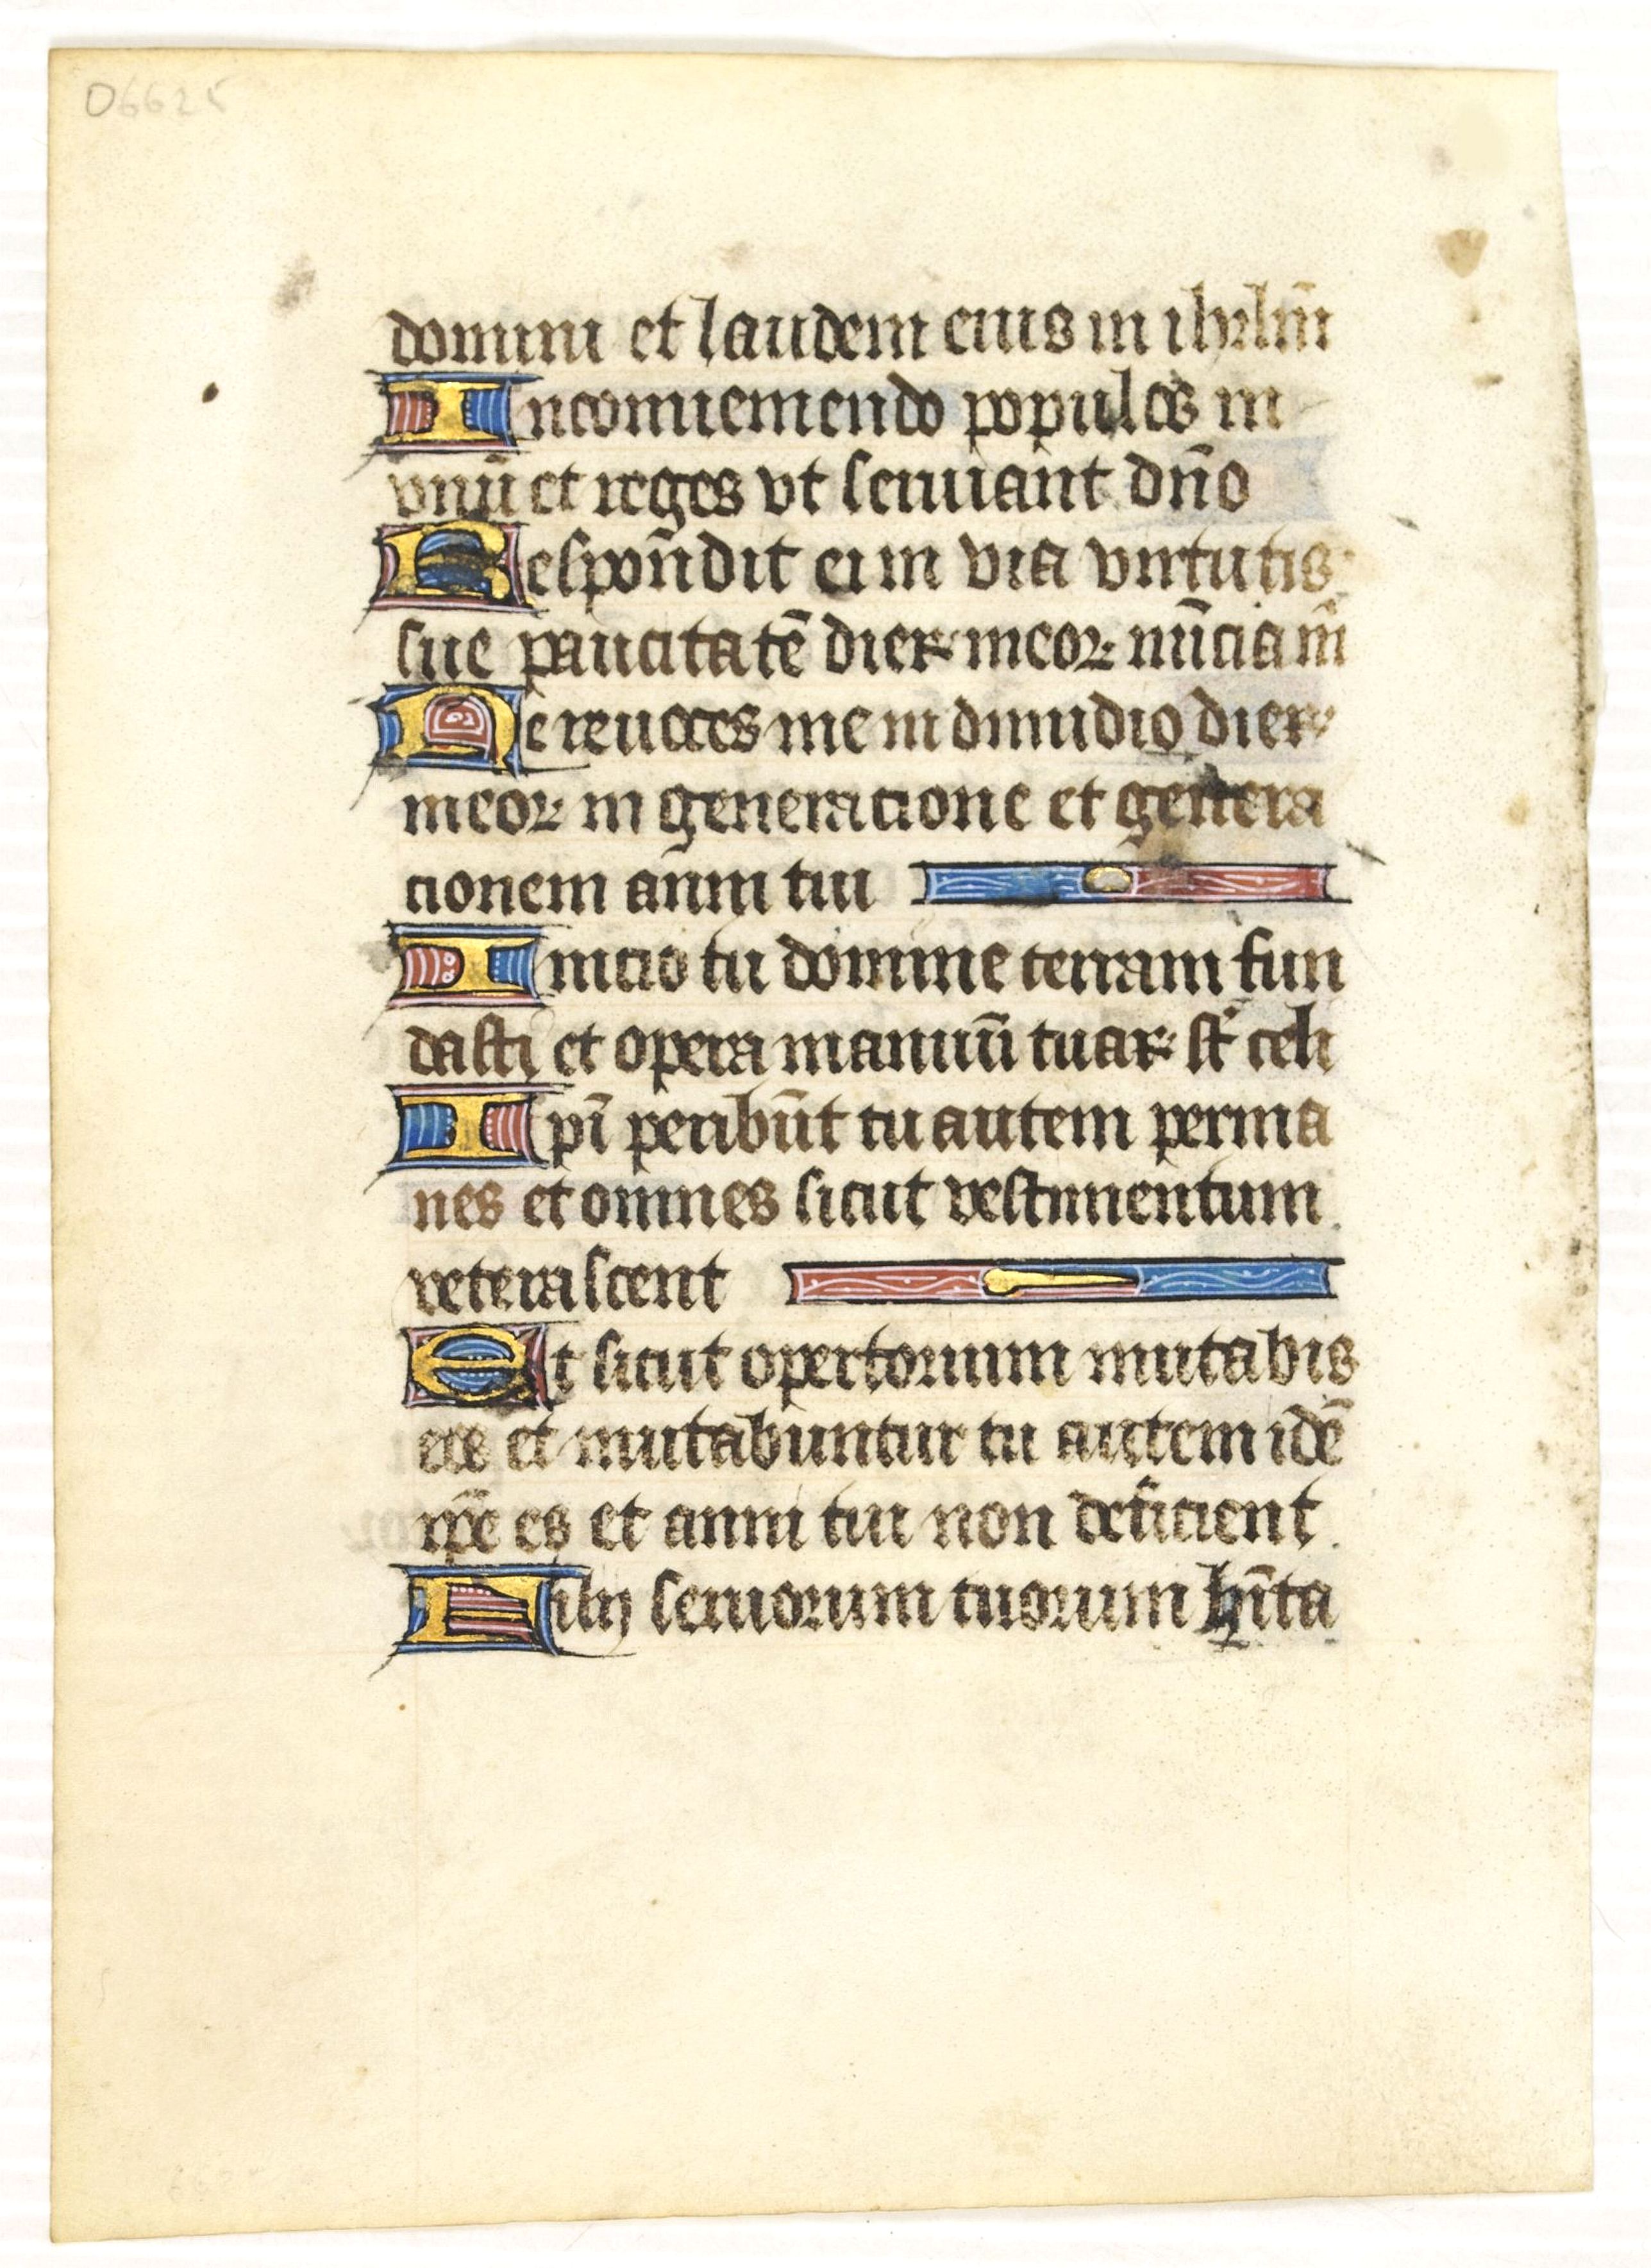 06625
domini et laudem eius in ihrlm̄
Inconueniendo populos in
vnū et reges vt seruiant dn̄o
Respon̄dit ei in via virtutis
sue paucitatē dieꝝ meoꝝ nūcia m̄
Ne reuoces me in dimidio dieꝝ
meoꝝ in generacione et genera
cionem anni tui
Inicio tu domine terram fun
dasti et opera manuū tuaꝝ st̄ celi
Ipī peribūt tu autem perma
nes et omnes sicut vestimentum
veterascent
Et sicut opertorium mutabis
eos et mutabuntur tu autem idē
ip̄e es et anni tui non deficient
Filij seruorum tuorum hīta